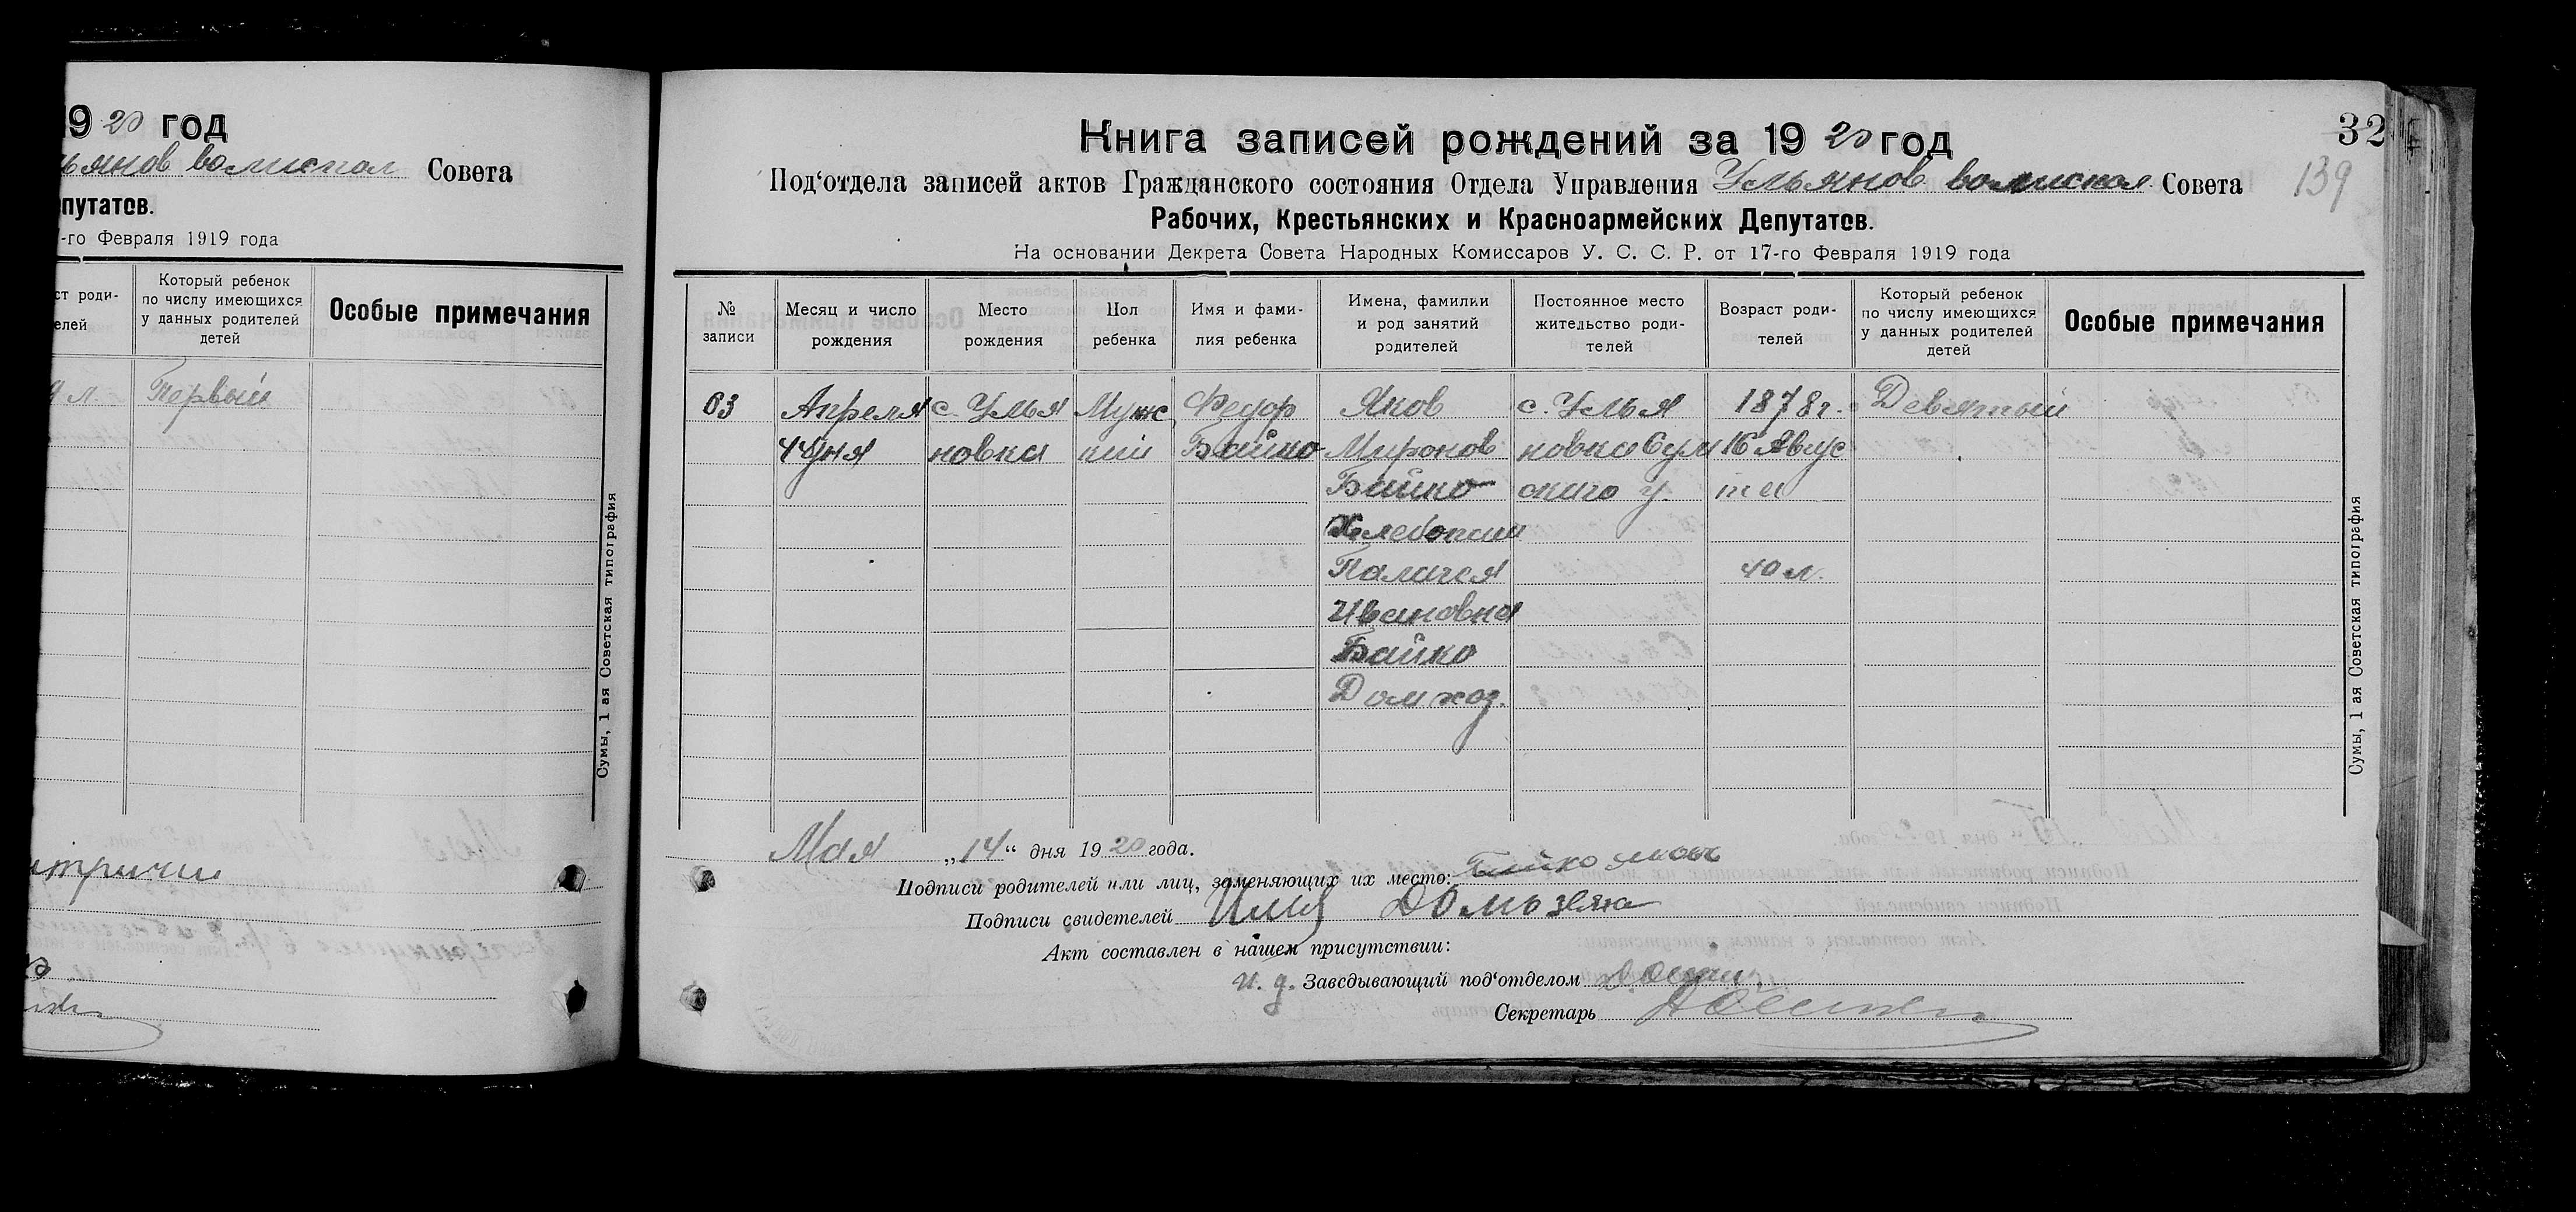 19 20 год
льянов волиспол Совета
путатов.
-го Февраля 1919 года
ст роди-
елей
Который ребенок
по числу имеющихся
у данных родителей
детей
Особые примечания
л. Первый
Сумы, 1 ая Советская типография
32
139
Книга записей рождений за 19 20 год
Под'отдела записей актов Гражданского состояния Отдела Управления Ульянов волиспол Совета
Рабочих, Крестьянских и Красноармейских Депутатов.
На основании Декрета Совета Народных Комиссаров У. С. С. Р. от 17-го Февраля 1919 года
№
записи
Месяц и число
рождения
Место
рождения
Пол
ребенка
Имя и фами-
лия ребенка
Имена, фамилии
и род занятий
родителей
Постоянное место
жительство роди-
телей
Возраст роди-
телей
Который ребенок
по числу имеющихся
у данных родителей
детей
Особые примечания
63 Апреля с. Улья Мужс Федор Яков с. Улья 1878г. Девятый
дня новка кий Байко Миронов новка Сум 16 Авгус
Байко ского у та
Хлебопаш
Палагея 40 л.
Ивановна
Байко
Домхоз.
Сумы, 1 ая Советская типография
Мая „14“ дня 19 20 года.
Подписи родителей или лиц, заменяющих их место: Байко
Подписи свидетелей
Акт составлен в нашем присутствии:
и. д. Заведывающий под'отделом
Секретарь